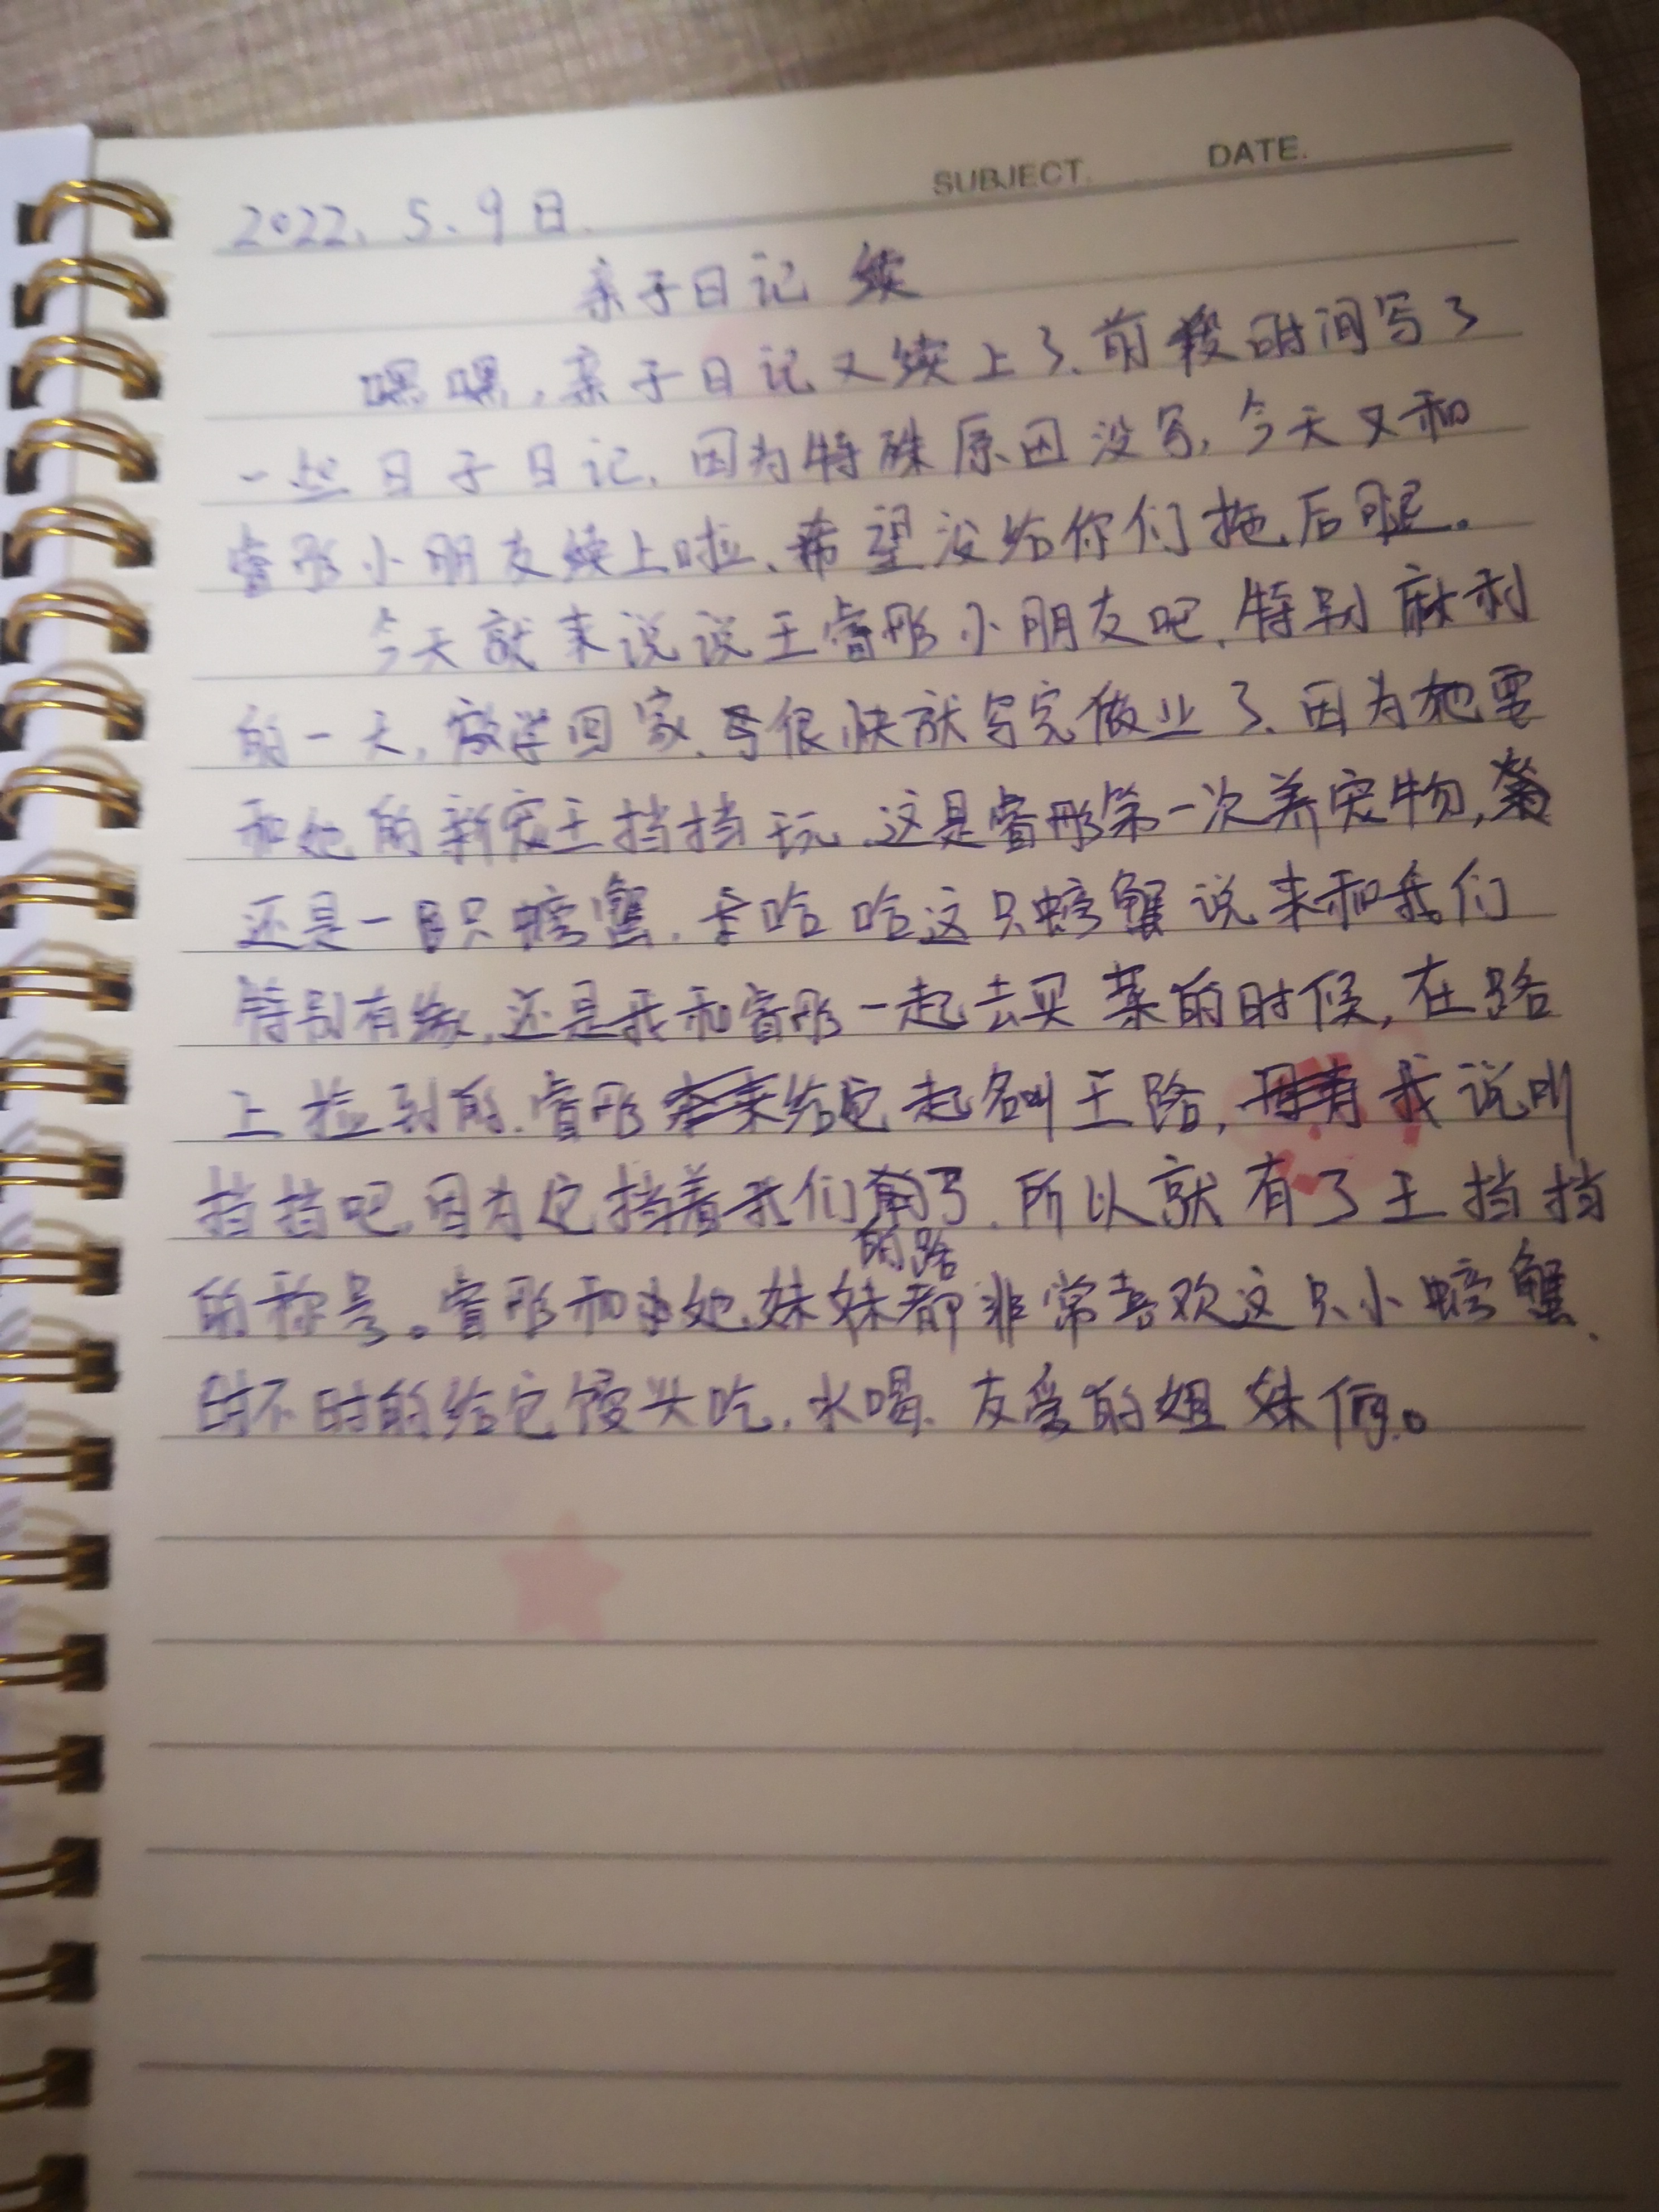 SUBJECT. DATE.
2022、5、9日.
亲子日记 续
嘿嘿，亲子日记又续上了、前段时间写了
一些日子日记，因为特殊原因没写，今天又和
睿彤小朋友续上啦、希望没给你们拖后腿。
今天就来说说王睿彤小朋友吧，特别麻利
的一天，放学回家、很快就写完做业了、因为她要
和她的新宠王挡挡玩、这是睿彤第一次养宠物，
还是一只螃蟹、哈哈这只螃蟹说来和我们
特别有缘，还是我和睿彤一起去买菜的时候，在路
上捡到的、睿彤给它起名叫王路，我说叫
挡挡吧、因为它挡着我们的路了、所以就有了王挡挡
的称号。睿彤和她妹妹都非常喜欢这只小螃蟹、
时不时的给它馒头吃，水喝、友爱的姐妹俩。